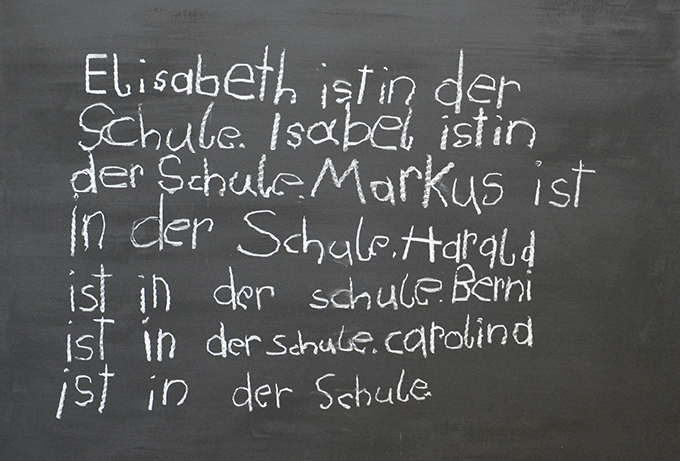 Elisabeth ist in der
Schule. Isabel ist in
der Schule. Markus ist
in der Schule. Harald
ist in der schule. Berni
ist in der schule. carolina
ist in der Schule